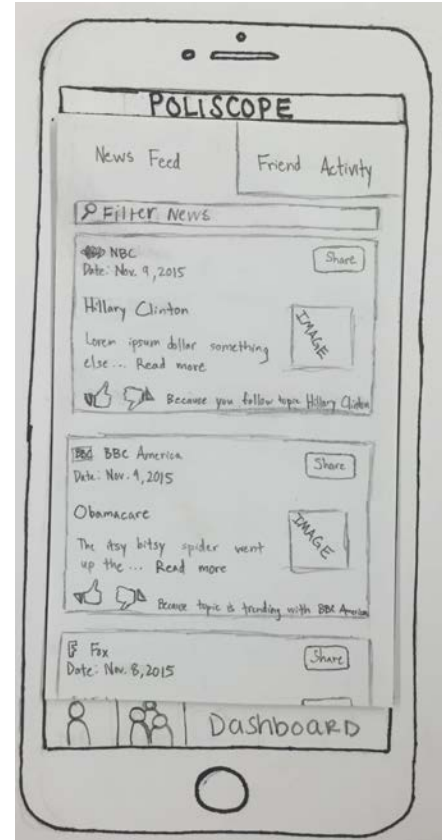 POLISCOPE
News Feed
Friend Activity
Filter News
NBC
Share
Date: Nov. 9, 2015
Hillary Clinton
Lorem ipsum dollar something
else... Read more
IMAGE
Because you follow topic Hillary Clinton
BBC BBC America
Share
Date: Nov. 9, 2015
Obamacare
The itsy bitsy spider went
up the ... Read more
IMAGE
Because topic is trending with BBC America
F Fox
Share
Date: Nov. 8, 2015
Dashboard